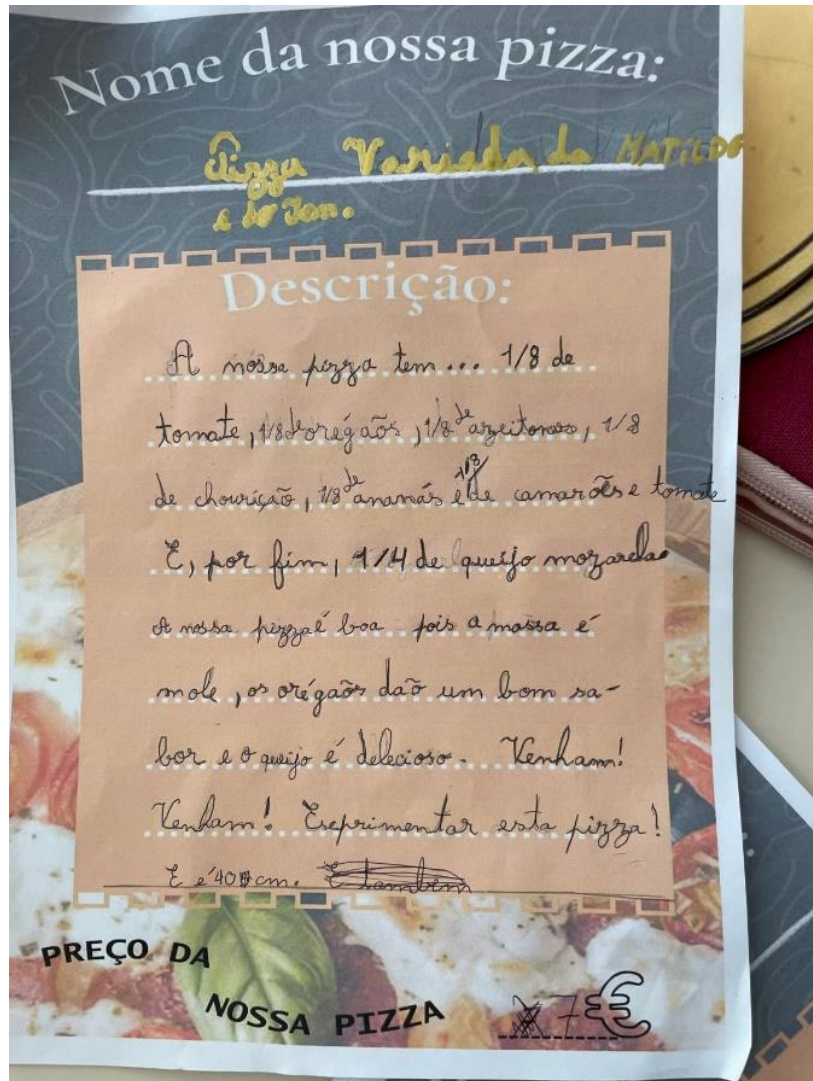 Nome da nossa pizza:
Pizza Variada da MATILDE
e do Ian.
Descrição:
A nossa pizza tem... 1/8 de
tomate, 1/8 de orégãos, 1/8 de azeitonas, 1/8
de chourição, 1/8 de ananás e 1/8 de camarões e tomate
E, por fim, 1/4 de queijo mozarela.
A nossa pizza é boa pois a massa é
mole, os orégãos dão um bom sa-
bor e o queijo é delecioso. Venham!
Venham! Esprimentar esta pizza!
E é 40 cm. E também
PREÇO DA
NOSSA PIZZA 7€